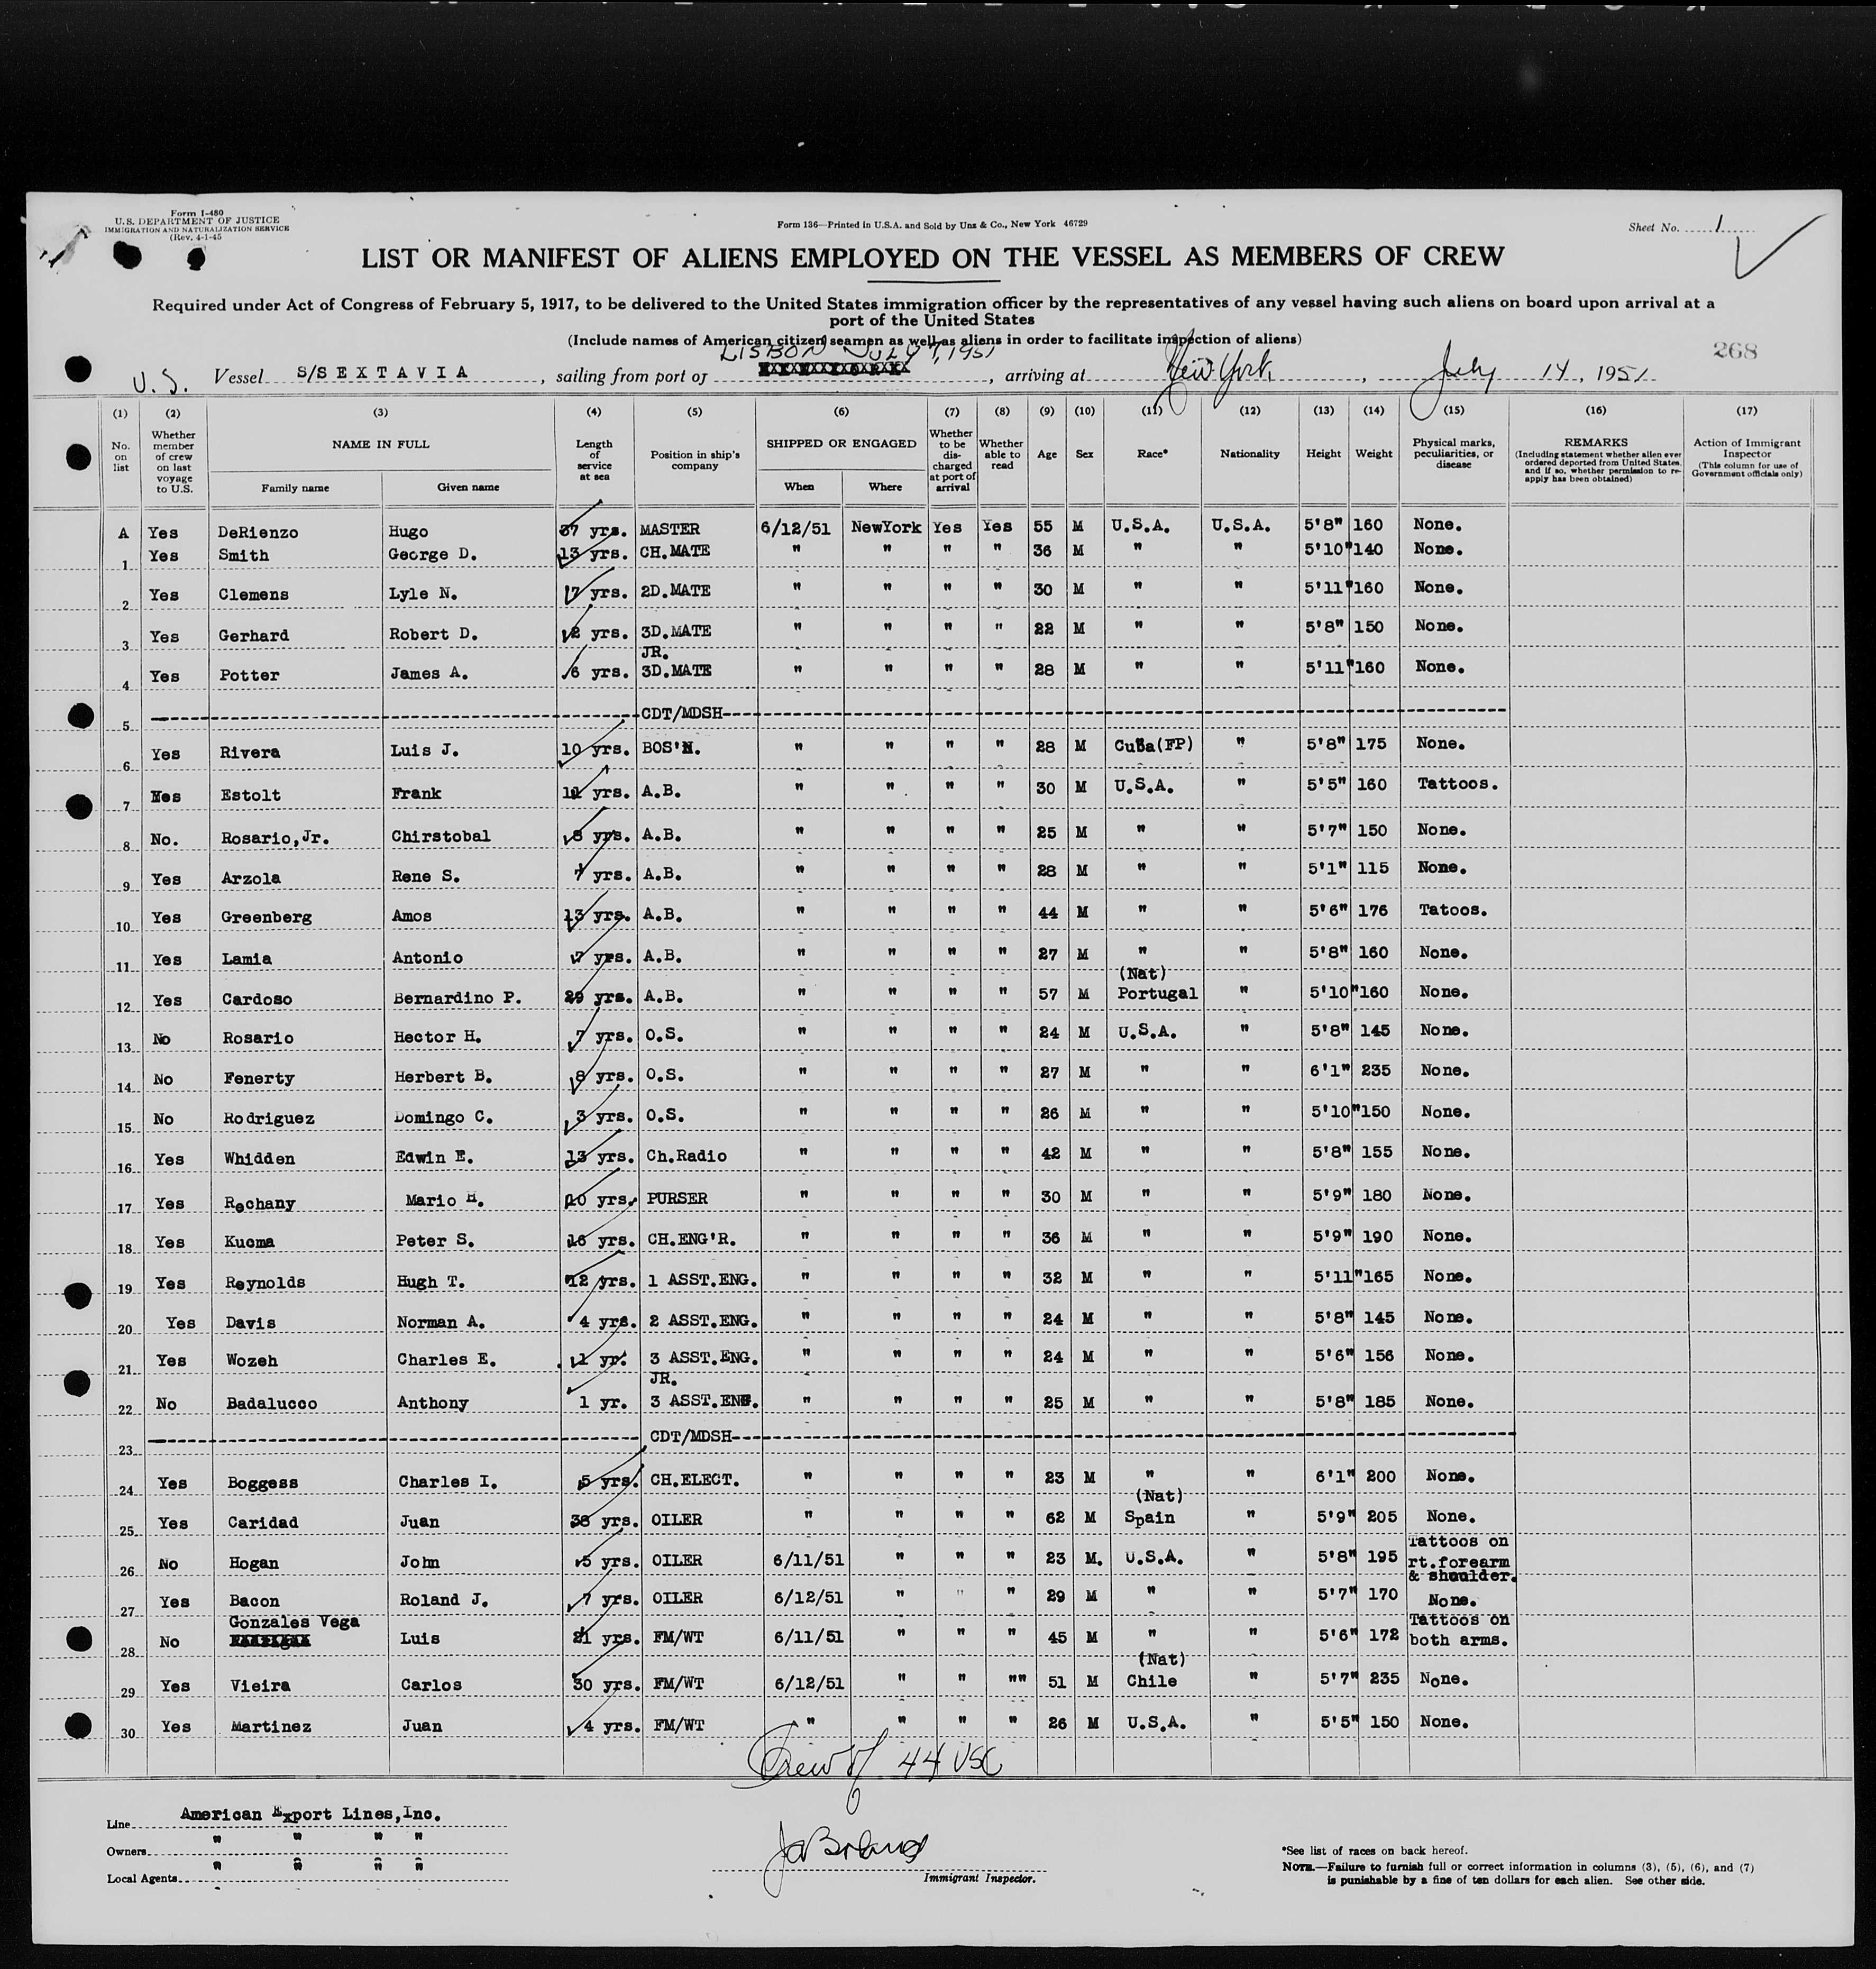 Form I-480
U.S. DEPARTMENT OF JUSTICE
IMMIGRATION AND NATURALIZATION SERVICE
(Rev. 4-1-45
Form 136—Printed in U.S.A. and Sold by Unz & Co., New York 46729
Sheet No. 1
LIST OR MANIFEST OF ALIENS EMPLOYED ON THE VESSEL AS MEMBERS OF CREW
Required under Act of Congress of February 5, 1917, to be delivered to the United States immigration officer by the representatives of any vessel having such aliens on board upon arrival at a
port of the United States
(Include names of American citizen seamen as well as aliens in order to facilitate inspection of aliens)
268
LISBON JULY 7, 1951
U.S. Vessel S/S EXTAVIA, sailing from port of, arriving at New York, July 14, 1951
(1) (2) (3) (4) (5) (6) (7) (8) (9) (10) (11) (12) (13) (14) (15) (16) (17)
No. on list Whether member of crew on last voyage to U.S. NAME IN FULL Family name Given name Length of service at sea Position in ship's company SHIPPED OR ENGAGED When Where Whether to be discharged at port of arrival Whether able to read Age Sex Race* Nationality Height Weight Physical marks, peculiarities, or disease REMARKS (Including statement whether alien ever ordered deported from United States, and if so, whether permission to re-apply has been obtained) Action of Immigrant Inspector (This column for use of Government officials only)
A Yes DeRienzo Hugo 37 yrs. MASTER 6/12/51 NewYork Yes Yes 55 M U.S.A. U.S.A. 5'8" 160 None.
1 Yes Smith George D. 13 yrs. CH.MATE " " " " 36 M " " 5'10" 140 None.
2 Yes Clemens Lyle N. 17 yrs. 2D.MATE " " " " 30 M " " 5'11" 160 None.
3 Yes Gerhard Robert D. 2 yrs. 3D.MATE " " " " 22 M " " 5'8" 150 None.
JR.
4 Yes Potter James A. 6 yrs. 3D.MATE " " " " 28 M " " 5'11" 160 None.
5 CDT/MDSH
6 Yes Rivera Luis J. 10 yrs. BOS'N. " " " " 28 M Cuba(FP) " 5'8" 175 None.
7 Yes Estolt Frank 11 yrs. A.B. " " " " 30 M U.S.A. " 5'5" 160 Tattoos.
8 No. Rosario,Jr. Chirstobal 8 yrs. A.B. " " " " 25 M " " 5'7" 150 None.
9 Yes Arzola Rene S. 7 yrs. A.B. " " " " 28 M " " 5'1" 115 None.
10 Yes Greenberg Amos 13 yrs. A.B. " " " " 44 M " " 5'6" 176 Tatoos.
11 Yes Lamia Antonio 7 yrs. A.B. " " " " 27 M " " 5'8" 160 None.
(Nat)
12 Yes Cardoso Bernardino P. 29 yrs. A.B. " " " " 57 M Portugal " 5'10" 160 None.
13 No Rosario Hector H. 7 yrs. O.S. " " " " 24 M U.S.A. " 5'8" 145 None.
14 No Fenerty Herbert B. 8 yrs. O.S. " " " " 27 M " " 6'1" 235 None.
15 No Rodriguez Domingo C. 3 yrs. O.S. " " " " 26 M " " 5'10" 150 None.
16 Yes Whidden Edwin E. 13 yrs. Ch.Radio " " " " 42 M " " 5'8" 155 None.
17 Yes Rechany Mario H. 10 yrs. PURSER " " " " 30 M " " 5'9" 180 None.
18 Yes Kucma Peter S. 16 yrs. CH.ENG'R. " " " " 36 M " " 5'9" 190 None.
19 Yes Reynolds Hugh T. 12 yrs. 1 ASST.ENG. " " " " 32 M " " 5'11" 165 None.
20 Yes Davis Norman A. 4 yrs. 2 ASST.ENG. " " " " 24 M " " 5'8" 145 None.
21 Yes Wozeh Charles E. 1 yr. 3 ASST.ENG. " " " " 24 M " " 5'6" 156 None.
JR.
22 No Badalucco Anthony 1 yr. 3 ASST.ENG. " " " " 25 M " " 5'8" 185 None.
23 CDT/MDSH
24 Yes Boggess Charles I. 5 yrs. CH.ELECT. " " " " 23 M " " 6'1" 200 None.
(Nat)
25 Yes Caridad Juan 38 yrs. OILER " " " " 62 M Spain " 5'9" 205 None.
26 No Hogan John 5 yrs. OILER 6/11/51 " " " 23 M. U.S.A. " 5'8" 195 Tattoos on rt.forearm & shoulder.
27 Yes Bacon Roland J. 7 yrs. OILER 6/12/51 " " " 29 M " " 5'7" 170 None.
28 No Gonzales Vega Luis 21 yrs. FM/WT 6/11/51 " " " 45 M " " 5'6" 172 Tattoos on both arms.
(Nat)
29 Yes Vieira Carlos 30 yrs. FM/WT 6/12/51 " " "" 51 M Chile " 5'7" 235 None.
30 Yes Martinez Juan 4 yrs. FM/WT " " " " 26 M U.S.A. " 5'5" 150 None.
Crew of 44 USC
Line American Export Lines,Inc.
Owners " " " "
Local Agents " " " "
Immigrant Inspector.
*See list of races on back hereof.
NOTE.—Failure to furnish full or correct information in columns (3), (5), (6), and (7)
is punishable by a fine of ten dollars for each alien. See other side.